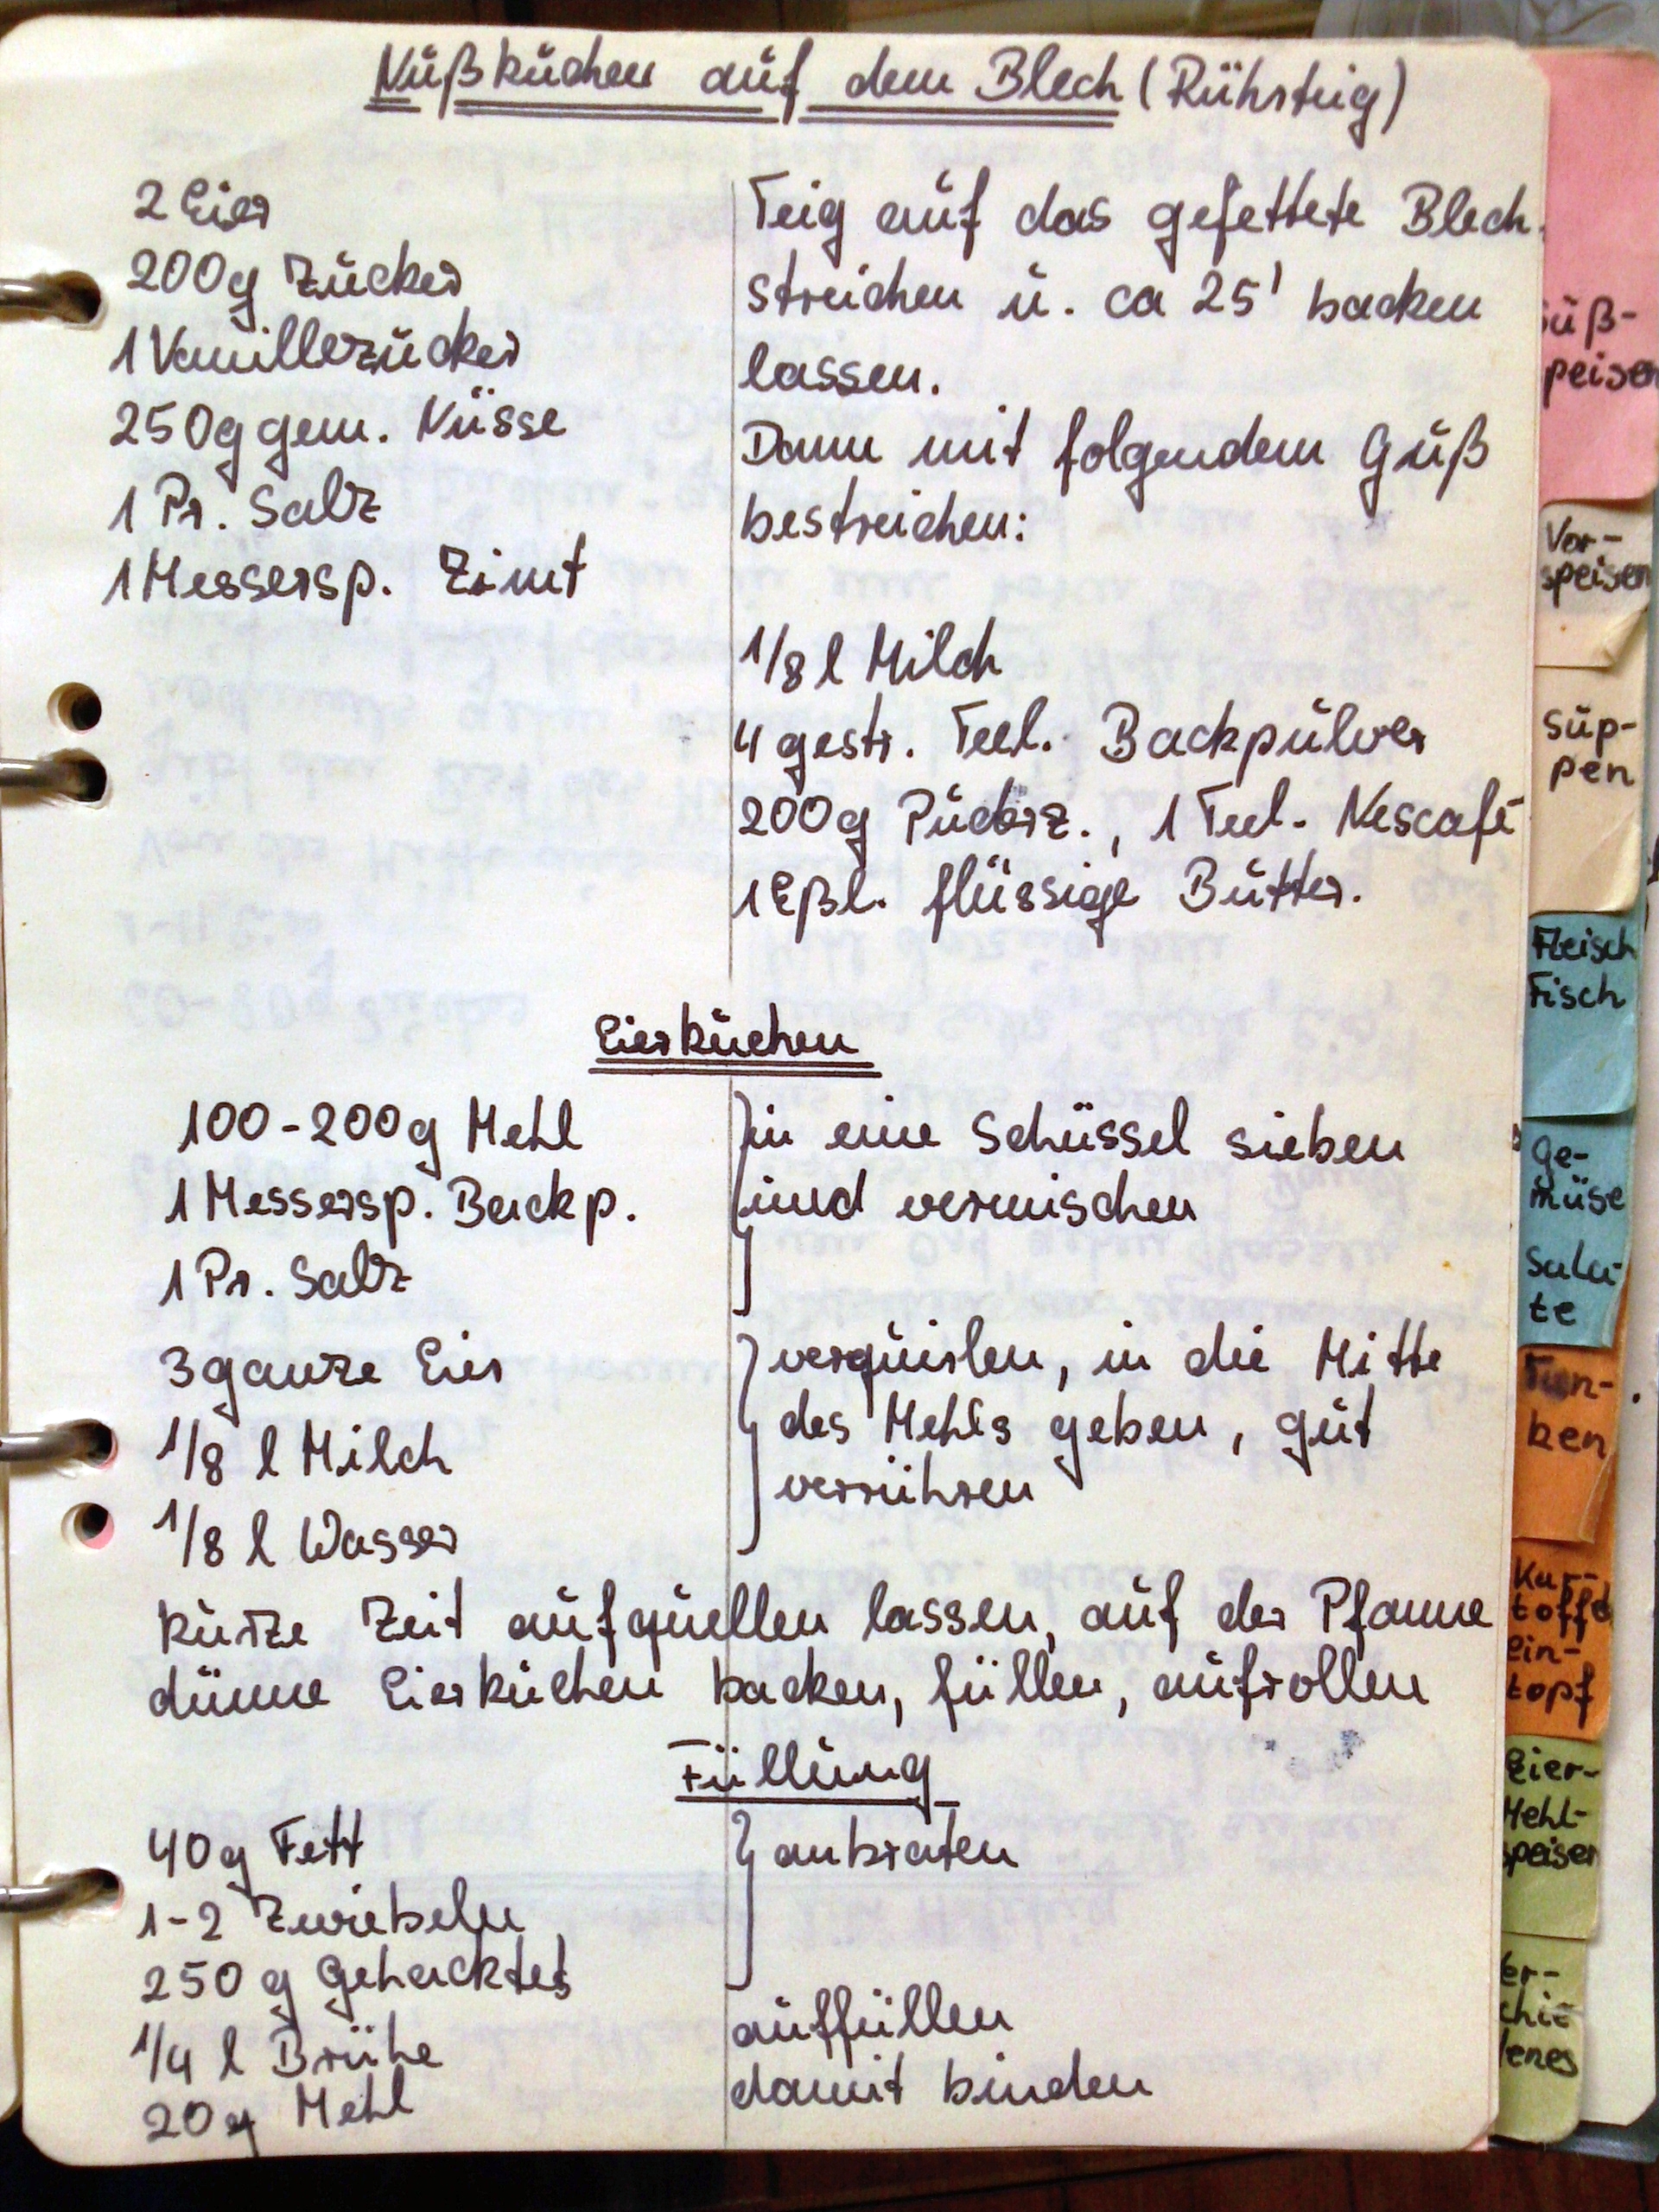 Nußkuchen auf dem Blech (Rührteig)
2 Eier
200g Zucker
1 Vanillezucker
250g gem. Nüsse
1 Pr. Salz
1 Messersp. Zimt
Teig auf das gefettete Blech
streichen u. ca 25' backen
lassen.
Dann mit folgendem Guß
bestreichen:
1/8 l Milch
4 gestr. Teel. Backpulver
200g Puderz., 1 Teel. Nescafé
1 Eßl. flüssige Butter.
Eierkuchen
100-200g Mehl
1 Messersp. Backp.
1 Pr. Salz
in eine Schüssel sieben
und vermischen
3 ganze Eier
1/8 l Milch
1/8 l Wasser
verquirlen, in die Mitte
des Mehls geben, gut
verrühren
kurze Zeit aufquellen lassen, auf der Pfanne
dünne Eierkuchen backen, füllen, aufrollen
Füllung
40g Fett
1-2 Zwiebeln
250 g Gehacktes
1/4 l Brühe
20g Mehl
anbraten
auffüllen
damit binden
süß-
peisen
Vor-
speisen
Sup-
pen
Fleisch
Fisch
Ge-
müse
Sala-
te
Tun-
ken
Kar-
toffel
Ein-
topf
Eier-
Mehl-
speisen
er-
chie
denes